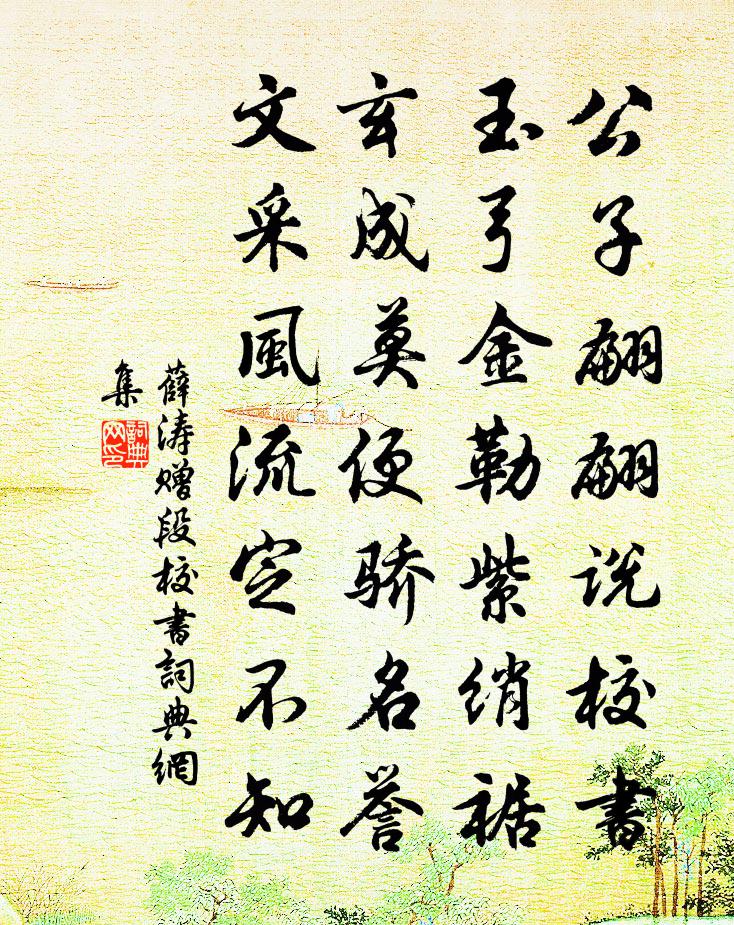 公子翩翩说校書
玉弓金勒紫绡裾
玄成莫便骄名誉
文采風流定不知
薛涛赠段校書詞典網
集
詞典网印